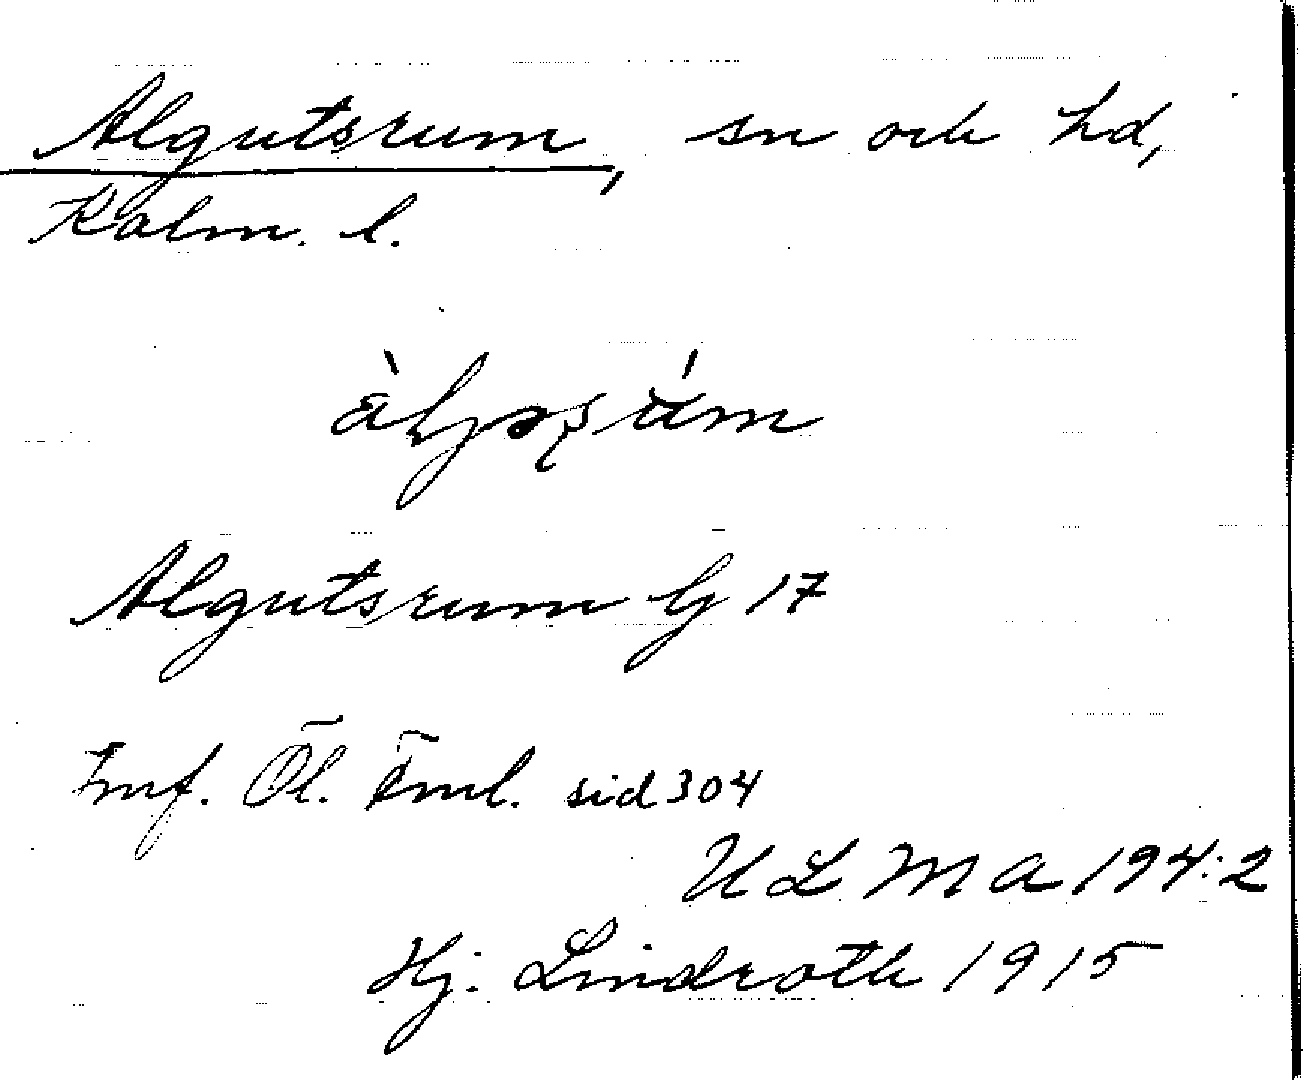 Algutsrum, sn och hd,
Kalm. l.
Algutsrum G 17
Inf. Öl. Fml. sid 304
ULMA 194:2
Hj. Lindroth 1915